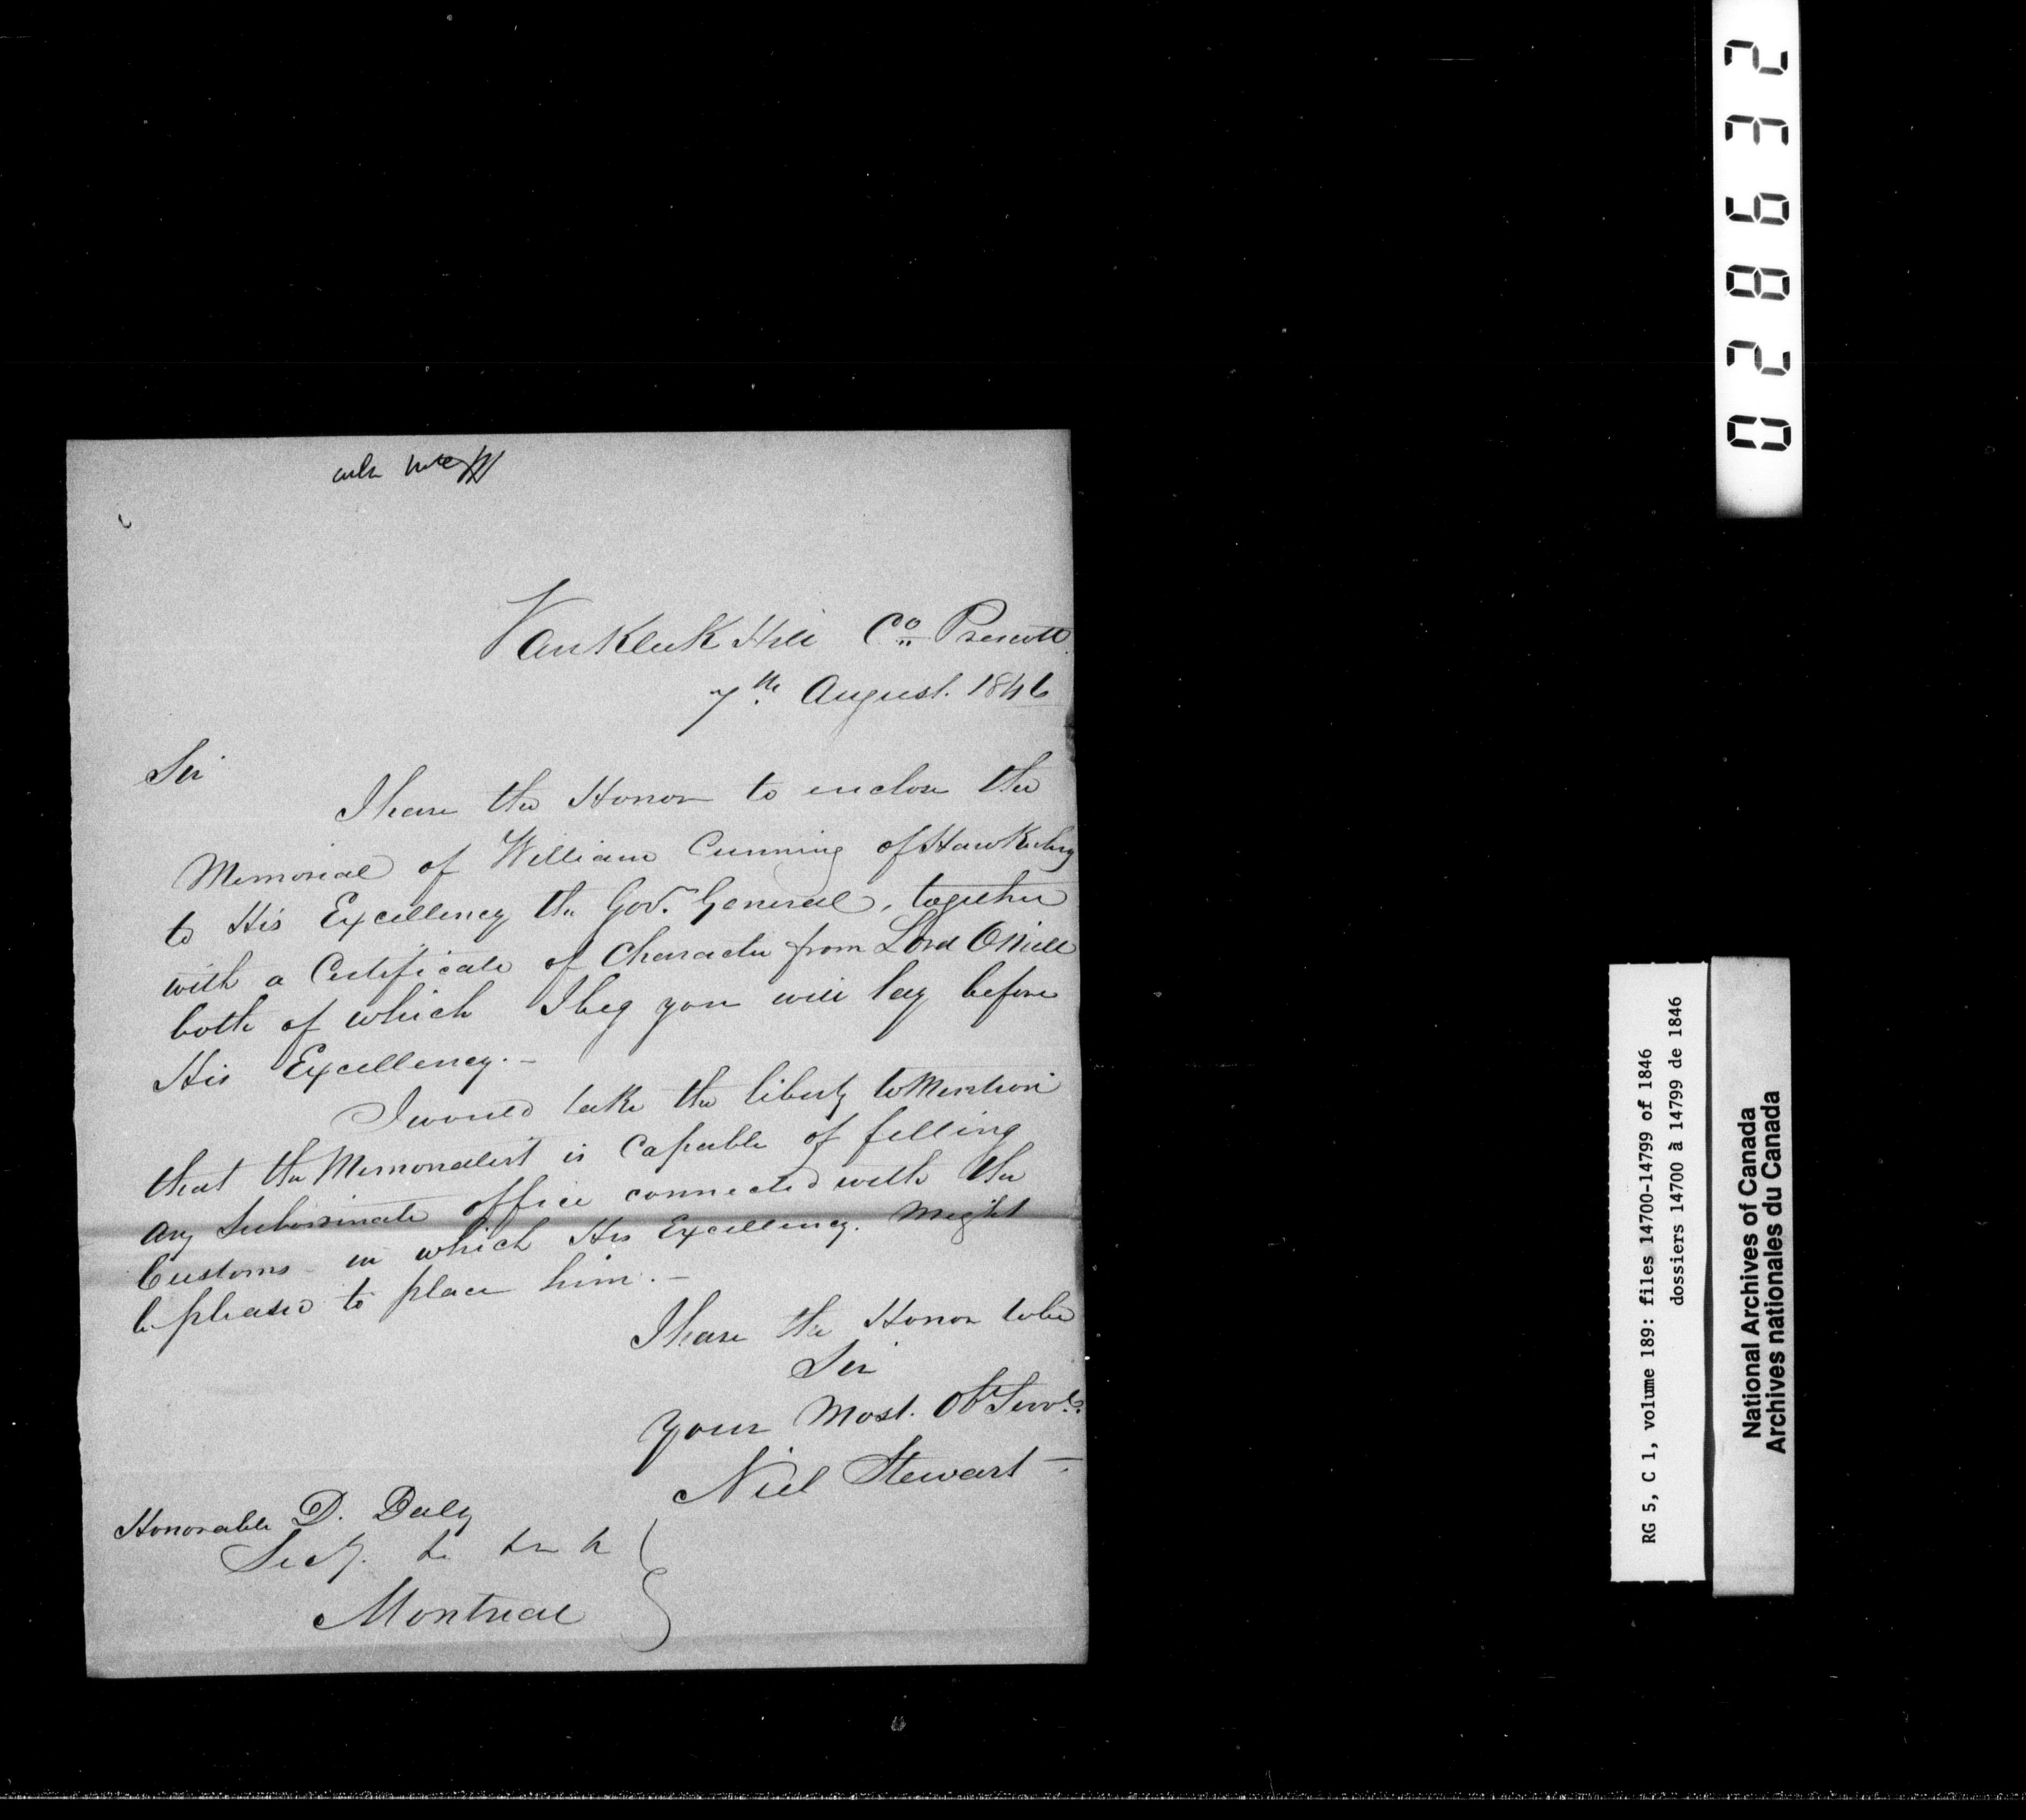 VanKleek Hill Co. Prescott.
7th. August. 1846
Sir
I have the Honor to enclose the
Memorial of William Cunning of Hawkesbury
to His Excellency the Gov. General, together
with a Certificate of Character from Lord ONeill
both of which I beg you will lay before
His Excellency. -
I would take the liberty to Mention
that the Memorialist is Capable of filling
any Subordinate office connected with the
Customs in which His Excellency. Might
be pleased to place him. -
I have the Honor to be
Sir
your Most. Obt Servt.
Niel Stewart -
Honorable D. Daly
Secy.
Montreal
028632
RG 5, C 1, volume 189: files 14700-14799 of 1846
dossiers 14700 à 14799 de 1846
National Archives of Canada
Archives nationales du Canada